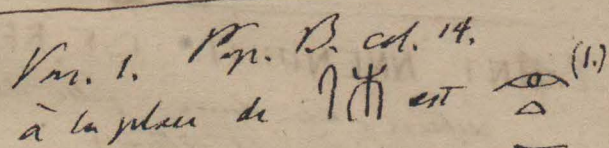 Var. 1. Pap. B. col. 14.
à la place de 𓋴𓄟 est 𓁹𓏏 (1.)